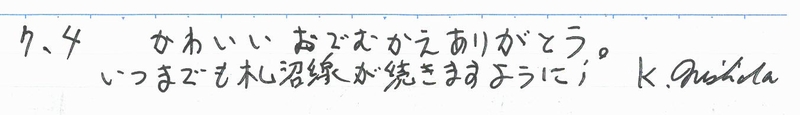 7、4 かわいいおでむかえありがとう。
いつまでも札沼線が続きますように! K.